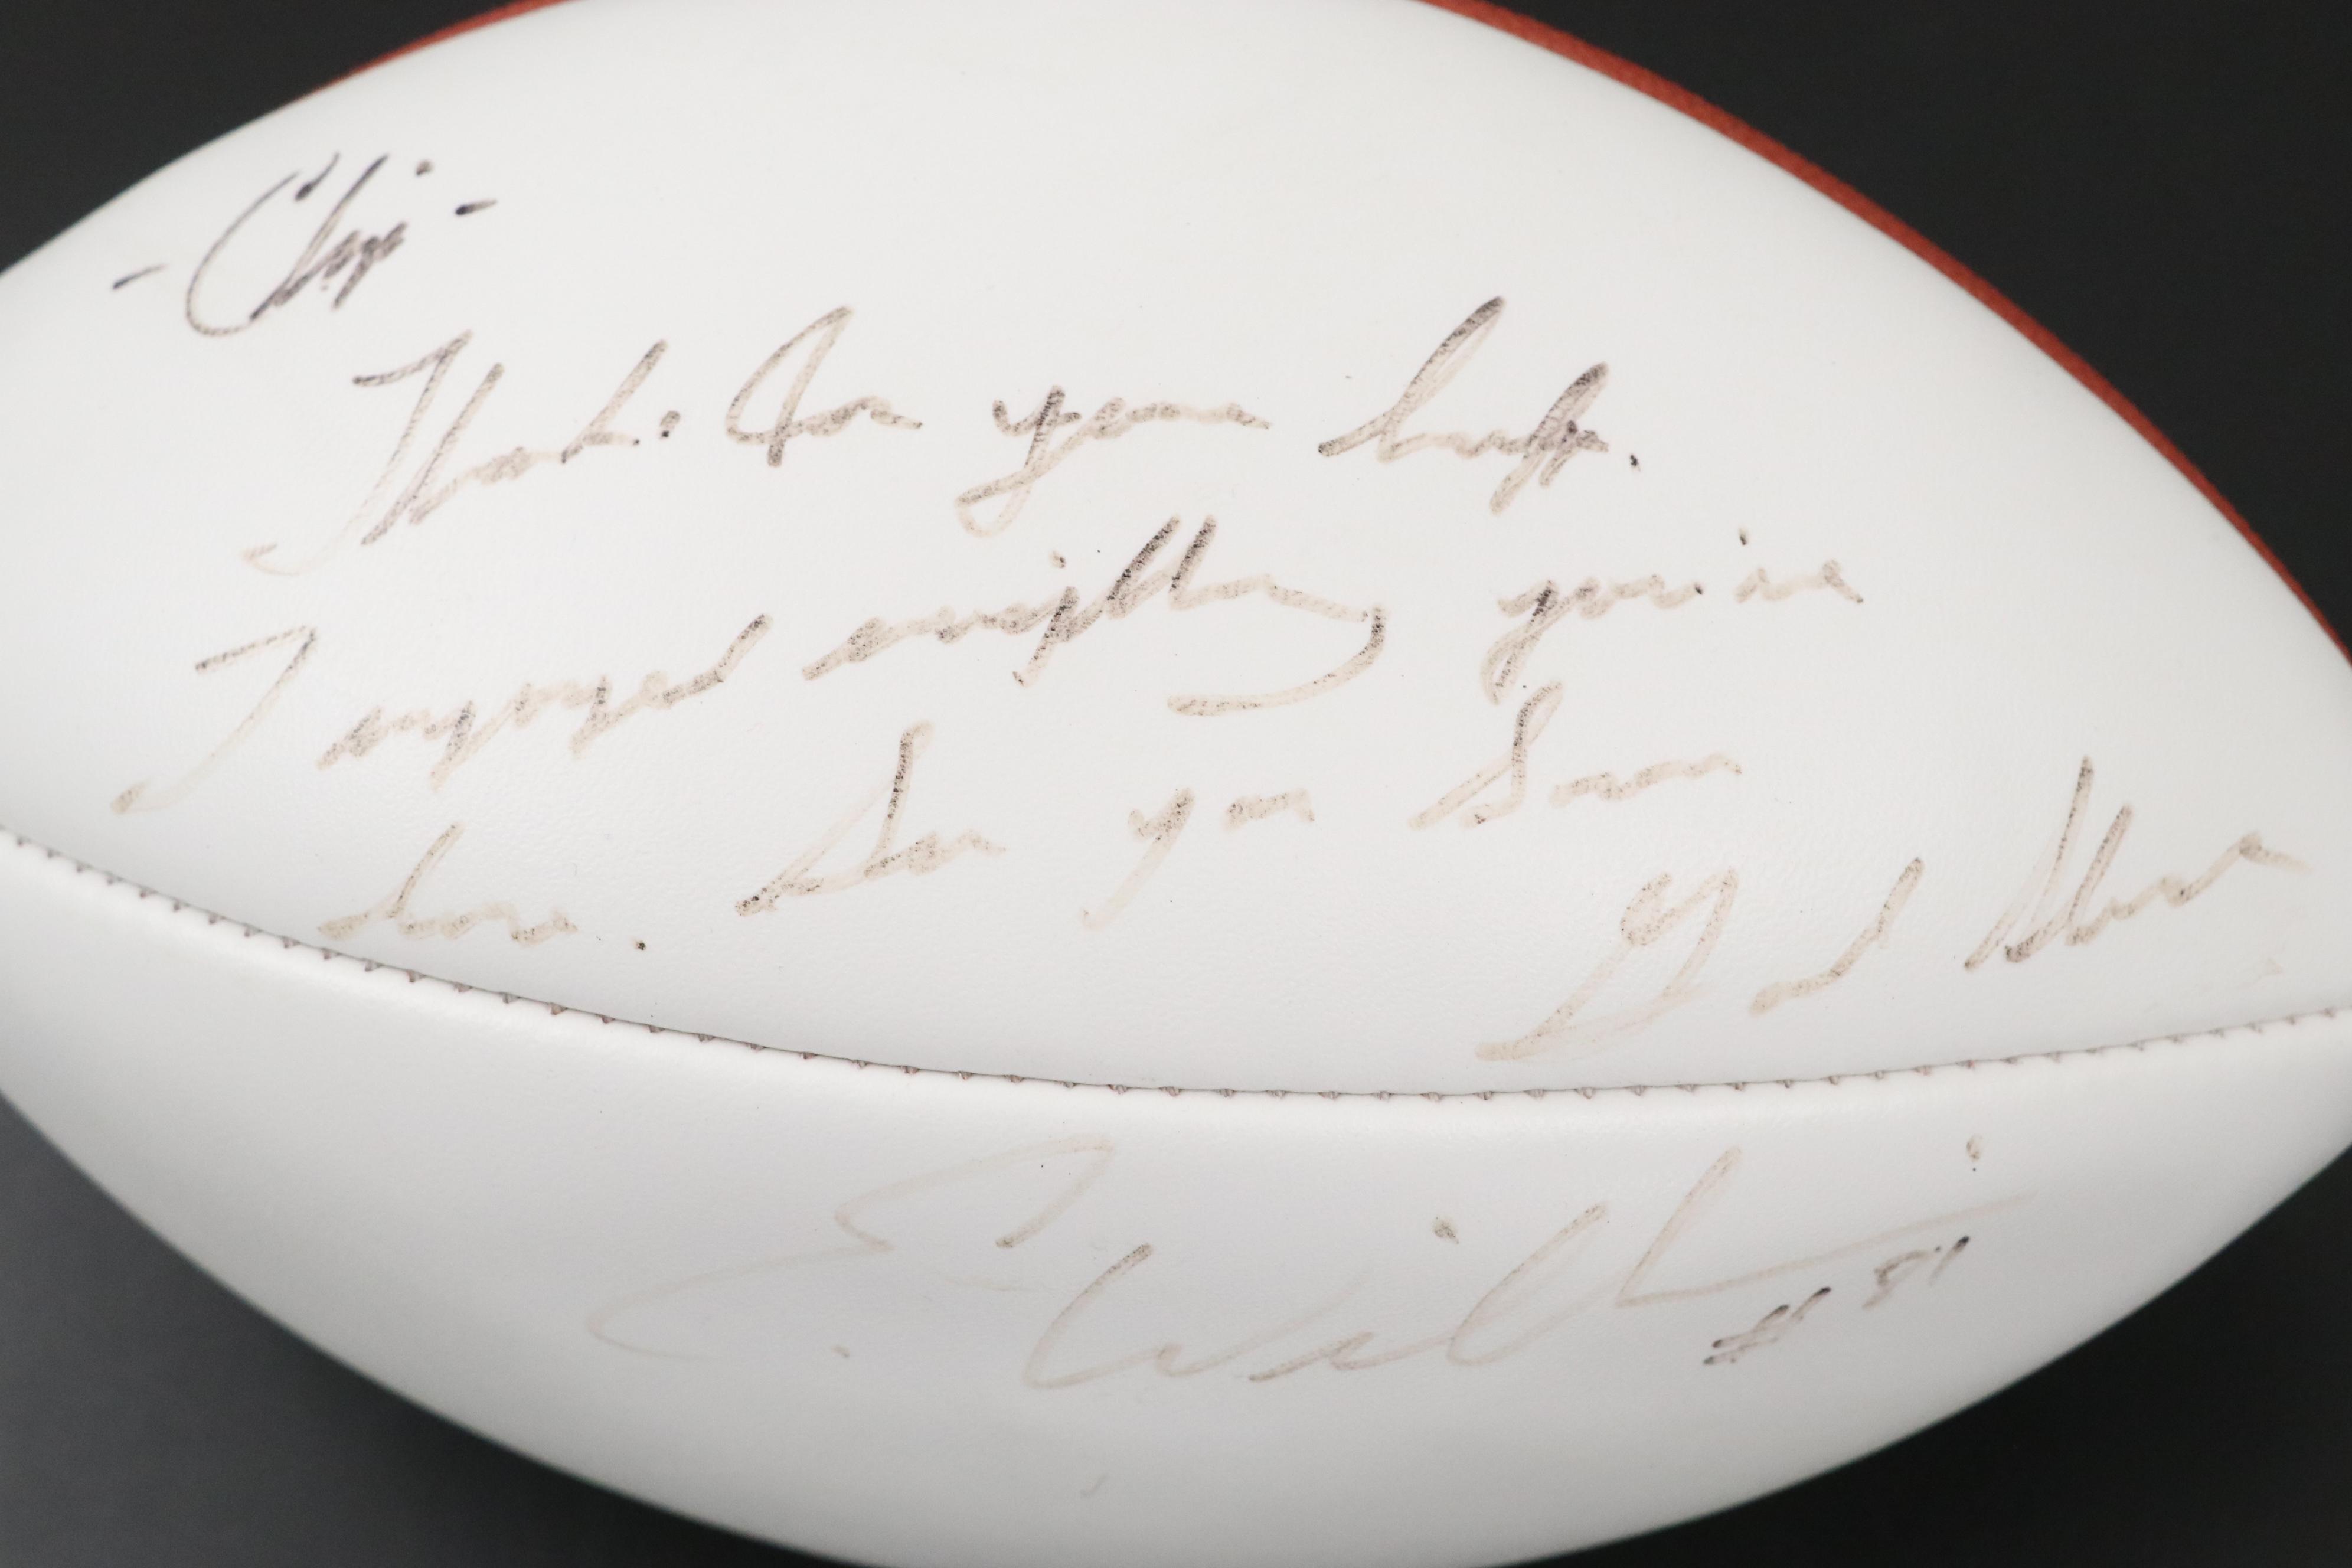 - Chip -
Thanks for your help.
I enjoyed everything you've
done. See you soon
God Bless
E. Wilk #81